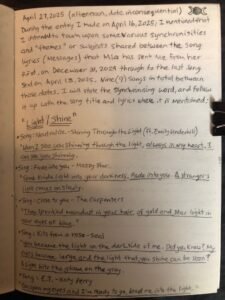 April 27, 2025 (afternoon, date inconsequential)
During the entry I made on April 16, 2025, I mentioned that
I intended to touch upon some various synchronicities
and "themes" or subjects shared between the song
lyrics (messages) that Mia has sent me from her
first, on December 31, 2024 through to the last song
sent on April 13, 2025. Nine(9) songs in total between
those dates. I will state the synchronizing word, and follow
it up with the song title and lyrics where it is mentioned:
"Light/Shine"
Song: - Shining Through the Light (ft. Emily Underhill)
"When I see you shining through the light, always in my heart, I
can see you shining."
Song: Fade into you - Mazzy Star
"Your into your darkness,
light comes on slowly."
Song: Close to you - The Carpenters
"They sprinkled moondust in your hair, of gold and star light in
your eyes of blue."
Song: Kiss from a rose - Seal
"You became the light on the dark side of me. Did you know? My
eyes become large, and the light that you shine can be seen?
kiss the on the grey.
Song: E.T. - Katy Perry
my eyes and I'm ready to go, lead me into the light."